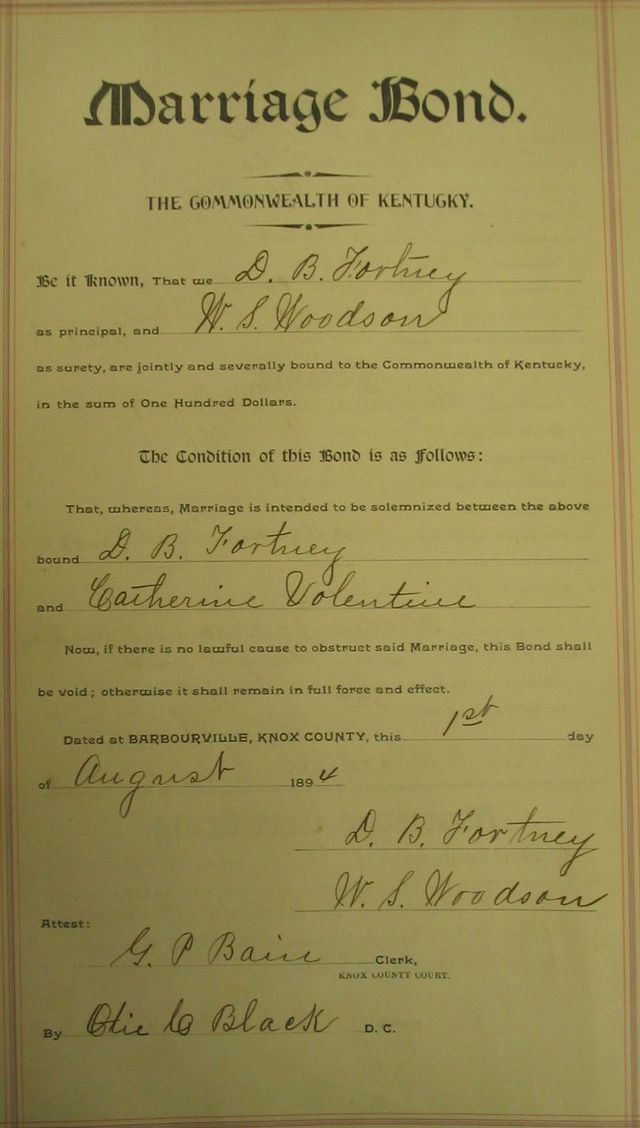 Marriage Bond.
THE COMMONWEALTH OF KENTUCKY.
Be it Known, That we D. B. Fortney
as principal, and W. S. Woodson
as surety, are jointly and severally bound to the Commonwealth of Kentucky,
in the sum of One Hundred Dollars.
The Condition of this Bond is as Follows:
That, whereas, Marriage is intended to be solemnized between the above
bound D. B. Fortney
and Catherine Volentine
Now, if there is no lawful cause to obstruct said Marriage, this Bond shall
be void; otherwise it shall remain in full force and effect.
Dated at BARBOURVILLE, KNOX COUNTY, this 1st day
of August 1894
D. B. Fortney
W. S. Woodson
Attest:
G. P Bain Clerk,
KNOX COUNTY COURT.
By Otie C Black D. C.